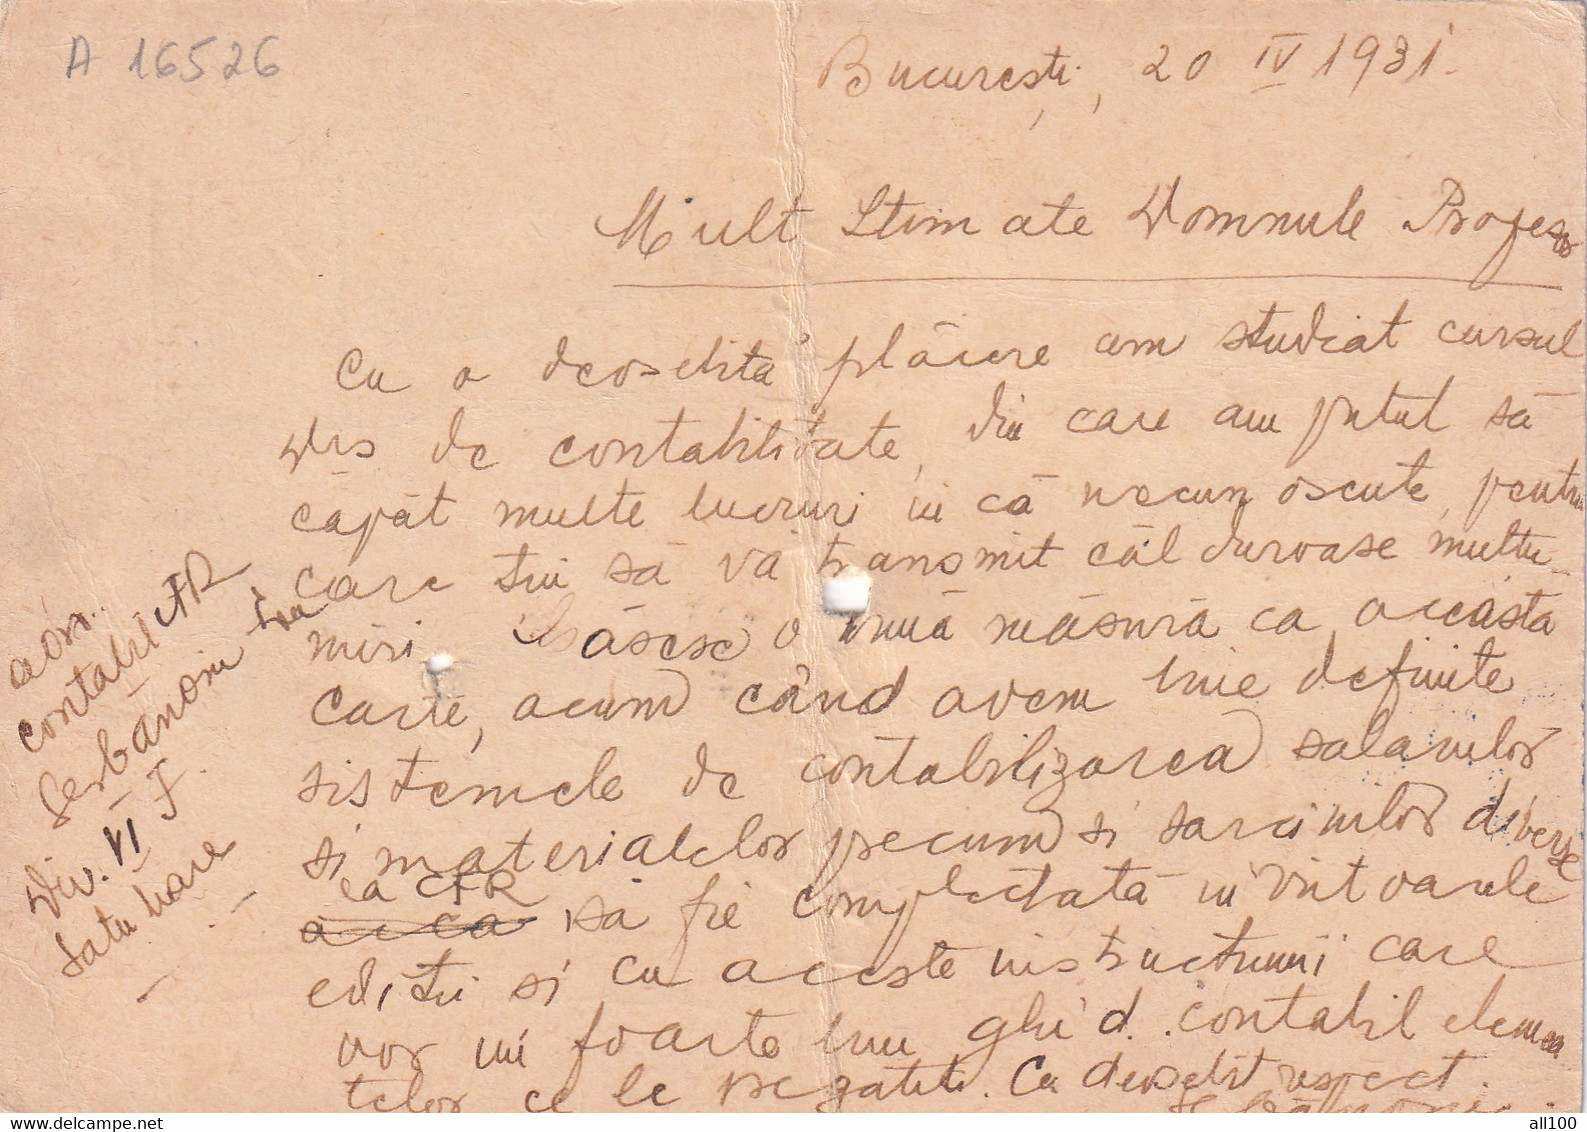 A 16526
București, 20 IV 1931.
Mult Stimate Domnule Profesor
Cu o deosebita plăcere am studiat cursul
Dvs de contabilitate, din care am putut să
capăt multe lucruri încă necunoscute, pentru
care țin să vă transmit călduroase mulțu-
miri. Găsesc o bună măsură ca aceasta
carte, acum când avem bine definite
sistemele de contabilizarea salariilor
si materialelor precum si sarcinilor diverse
la CFR
să fie complectată în viitoarele
ediții si cu aceste instrucțiuni care
vor fi foarte bun ghid contabil elemen
telor ce le pregatiti. Cu deosebit respect.
Serbănoiu
contabil CFR
Serbănoiu
Div. VI J.
Satu Mare
all-collection.net
all100